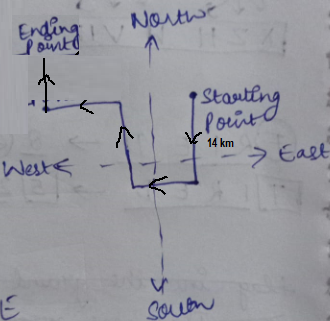 Ending
Point
North
Starting
Point
14 km
West
East
South
E